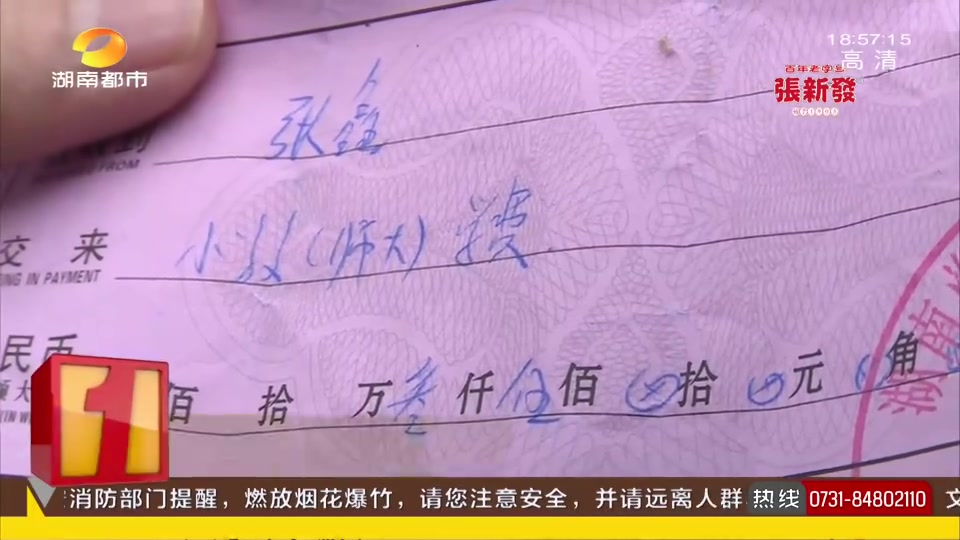 湖南都市
18:57:15
高清
百年老字号
張新發
张鑫
FROM
交 来
ING IN PAYMENT
小教(师大)学费
民币
佰 拾 万叁仟伍佰 拾 元 角
湖南
1
消防部门提醒，燃放烟花爆竹，请您注意安全，并请远离人群
热线 0731-84802110